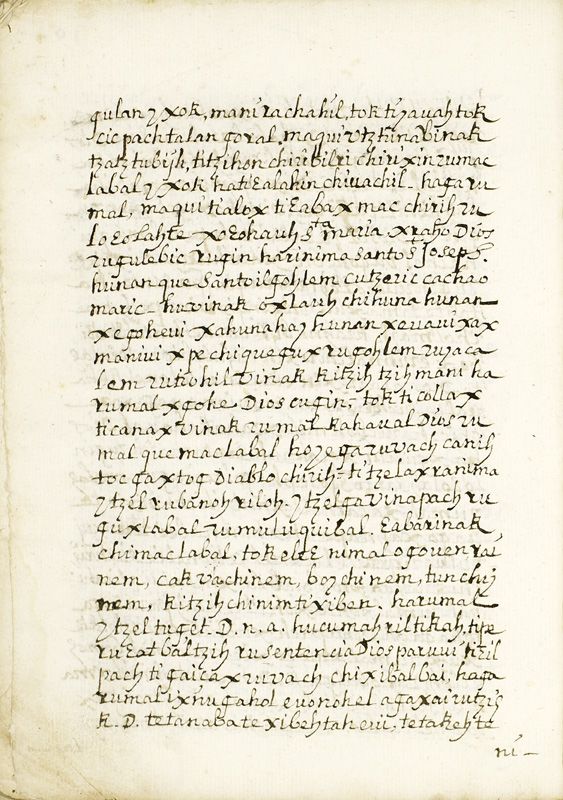 gulan ɿ xok, mani rachahil, tok tiyavah tok
cic pach talan goral, maqui vtz tuna vinak
tzatz tubijh, titzihon chiri bilri chiri xin rumac
labal ɿ xok hati Ealahin chivachil - haga ru
mal, maqui tialox ti Eabax mac chirih ru
loEolahte xoEohauh Sta maria xraho Dios
rugulebic rugin harinima santo Sr. Joseph.
hunan que Santoil gohlem cutzeric cachao
maric - huvinak oxlauh chihuna hunan
xegohevi xahuna hay hunan xevavi xax
manivi xpe chiquegux rugohlem ruyaca
lem rutiohil vinak kitzih tzih mani ha
rumal xgohe Dios cugin, - tok ti collax
ticanax vinak rumal kahaval Dios ru
mal que maclabal hoyega ruvach canih
toc gax tog Diablo chirih = ti tzelax ranima
ɿtzel rubanoh riloh. ɿtzelga vinapach ru
guxlabal rumuluquibal. Eabarinak
chimaclabal, tok elEE nimalogovenrai
nem, cakvachinem, boychinem, tunchij
nem, kitzih chinim tixiben. harumal
ɿtzel tuget. D. n. a. hucumah ril tikah, tipe
ruEat baltzih ru sentencia Dios paruvi tizil
pach tigaicax ruvach chixibalbai, haga
rumal ixnugahol evonohel agaxai rutzis
k. D. tetanaba texibeh taheui, tetakeh te
ni -